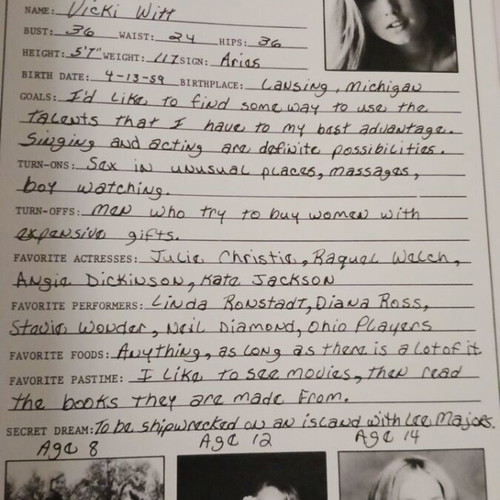 NAME: Vicki Witt
BUST: 36 WAIST: 24 HIPS: 36
HEIGHT: 5'7" WEIGHT: 117 SIGN: Aries
BIRTH DATE: 4-13-59 BIRTHPLACE: Lansing, Michigan
GOALS: I'd like to find some way to use the
talents that I have to my best advantage.
Singing and acting are definite possibilities.
TURN-ONS: Sex in unusual places, massages,
boy watching.
TURN-OFFS: Men who try to buy women with
expensive gifts.
FAVORITE ACTRESSES: Julie Christie, Raquel Welch,
Angie Dickinson, Kate Jackson
FAVORITE PERFORMERS: Linda Ronstadt, Diana Ross,
Stevie Wonder, Neil Diamond, Ohio Players
FAVORITE FOODS: Anything, as long as there is a lot of it
FAVORITE PASTIME: I like to see movies, then read
the books they are made from.
SECRET DREAM: To be shipwrecked on an island with Lee Majors.
Age 8 Age 12 Age 14